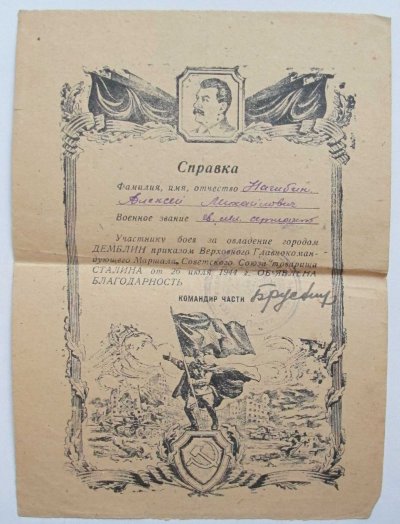 Справка
Фамилия, имя, отчество Нагибин
Алексей Михайлович
Военное звание мл. сержант
Участнику боев за овладение городам
ДЕМБЛИН приказом Верховного Главнокоман-
дующего Маршала Советского Союза товарища
СТАЛИНА от 26 июля 1944 г. ОБ'ЯВЛЕНА
БЛАГОДАРНОСТЬ
КОМАНДИР ЧАСТИ